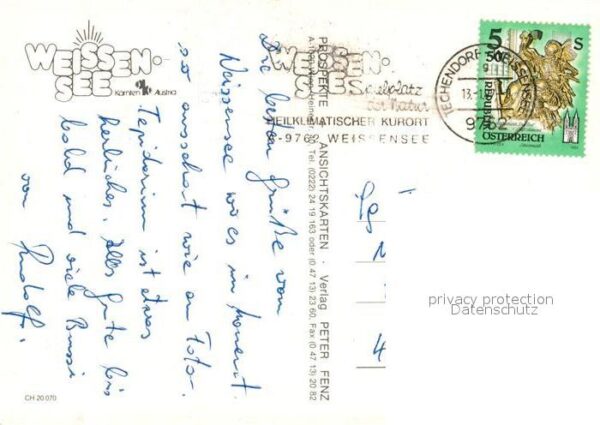 WEISSEN-
SEE
Kärnten Austria
Die besten Grüße vom
Weissensee wo es im Moment
so ausschaut wie am Foto.
Tepidarium ist etwas
herrliches. Alles Gute bis
bald und viele Bussi
von Rudolf.
CH 20.070
PROSPEKTE · ANSICHTSKARTEN · Verlag PETER FENZ
Tel. (0222) 24 19 163 oder (0 47 13) 23 60, Fax (0 47 13) 20 82
WEISSEN-
SEE
Spielplatz
der Natur
HEILKLIMATISCHER KURORT
A-9762 WEISSENSEE
TECHENDORF WEISSENSEE
9762
5 S
REPUBLIK
ÖSTERREICH
4
privacy protection
Datenschutz